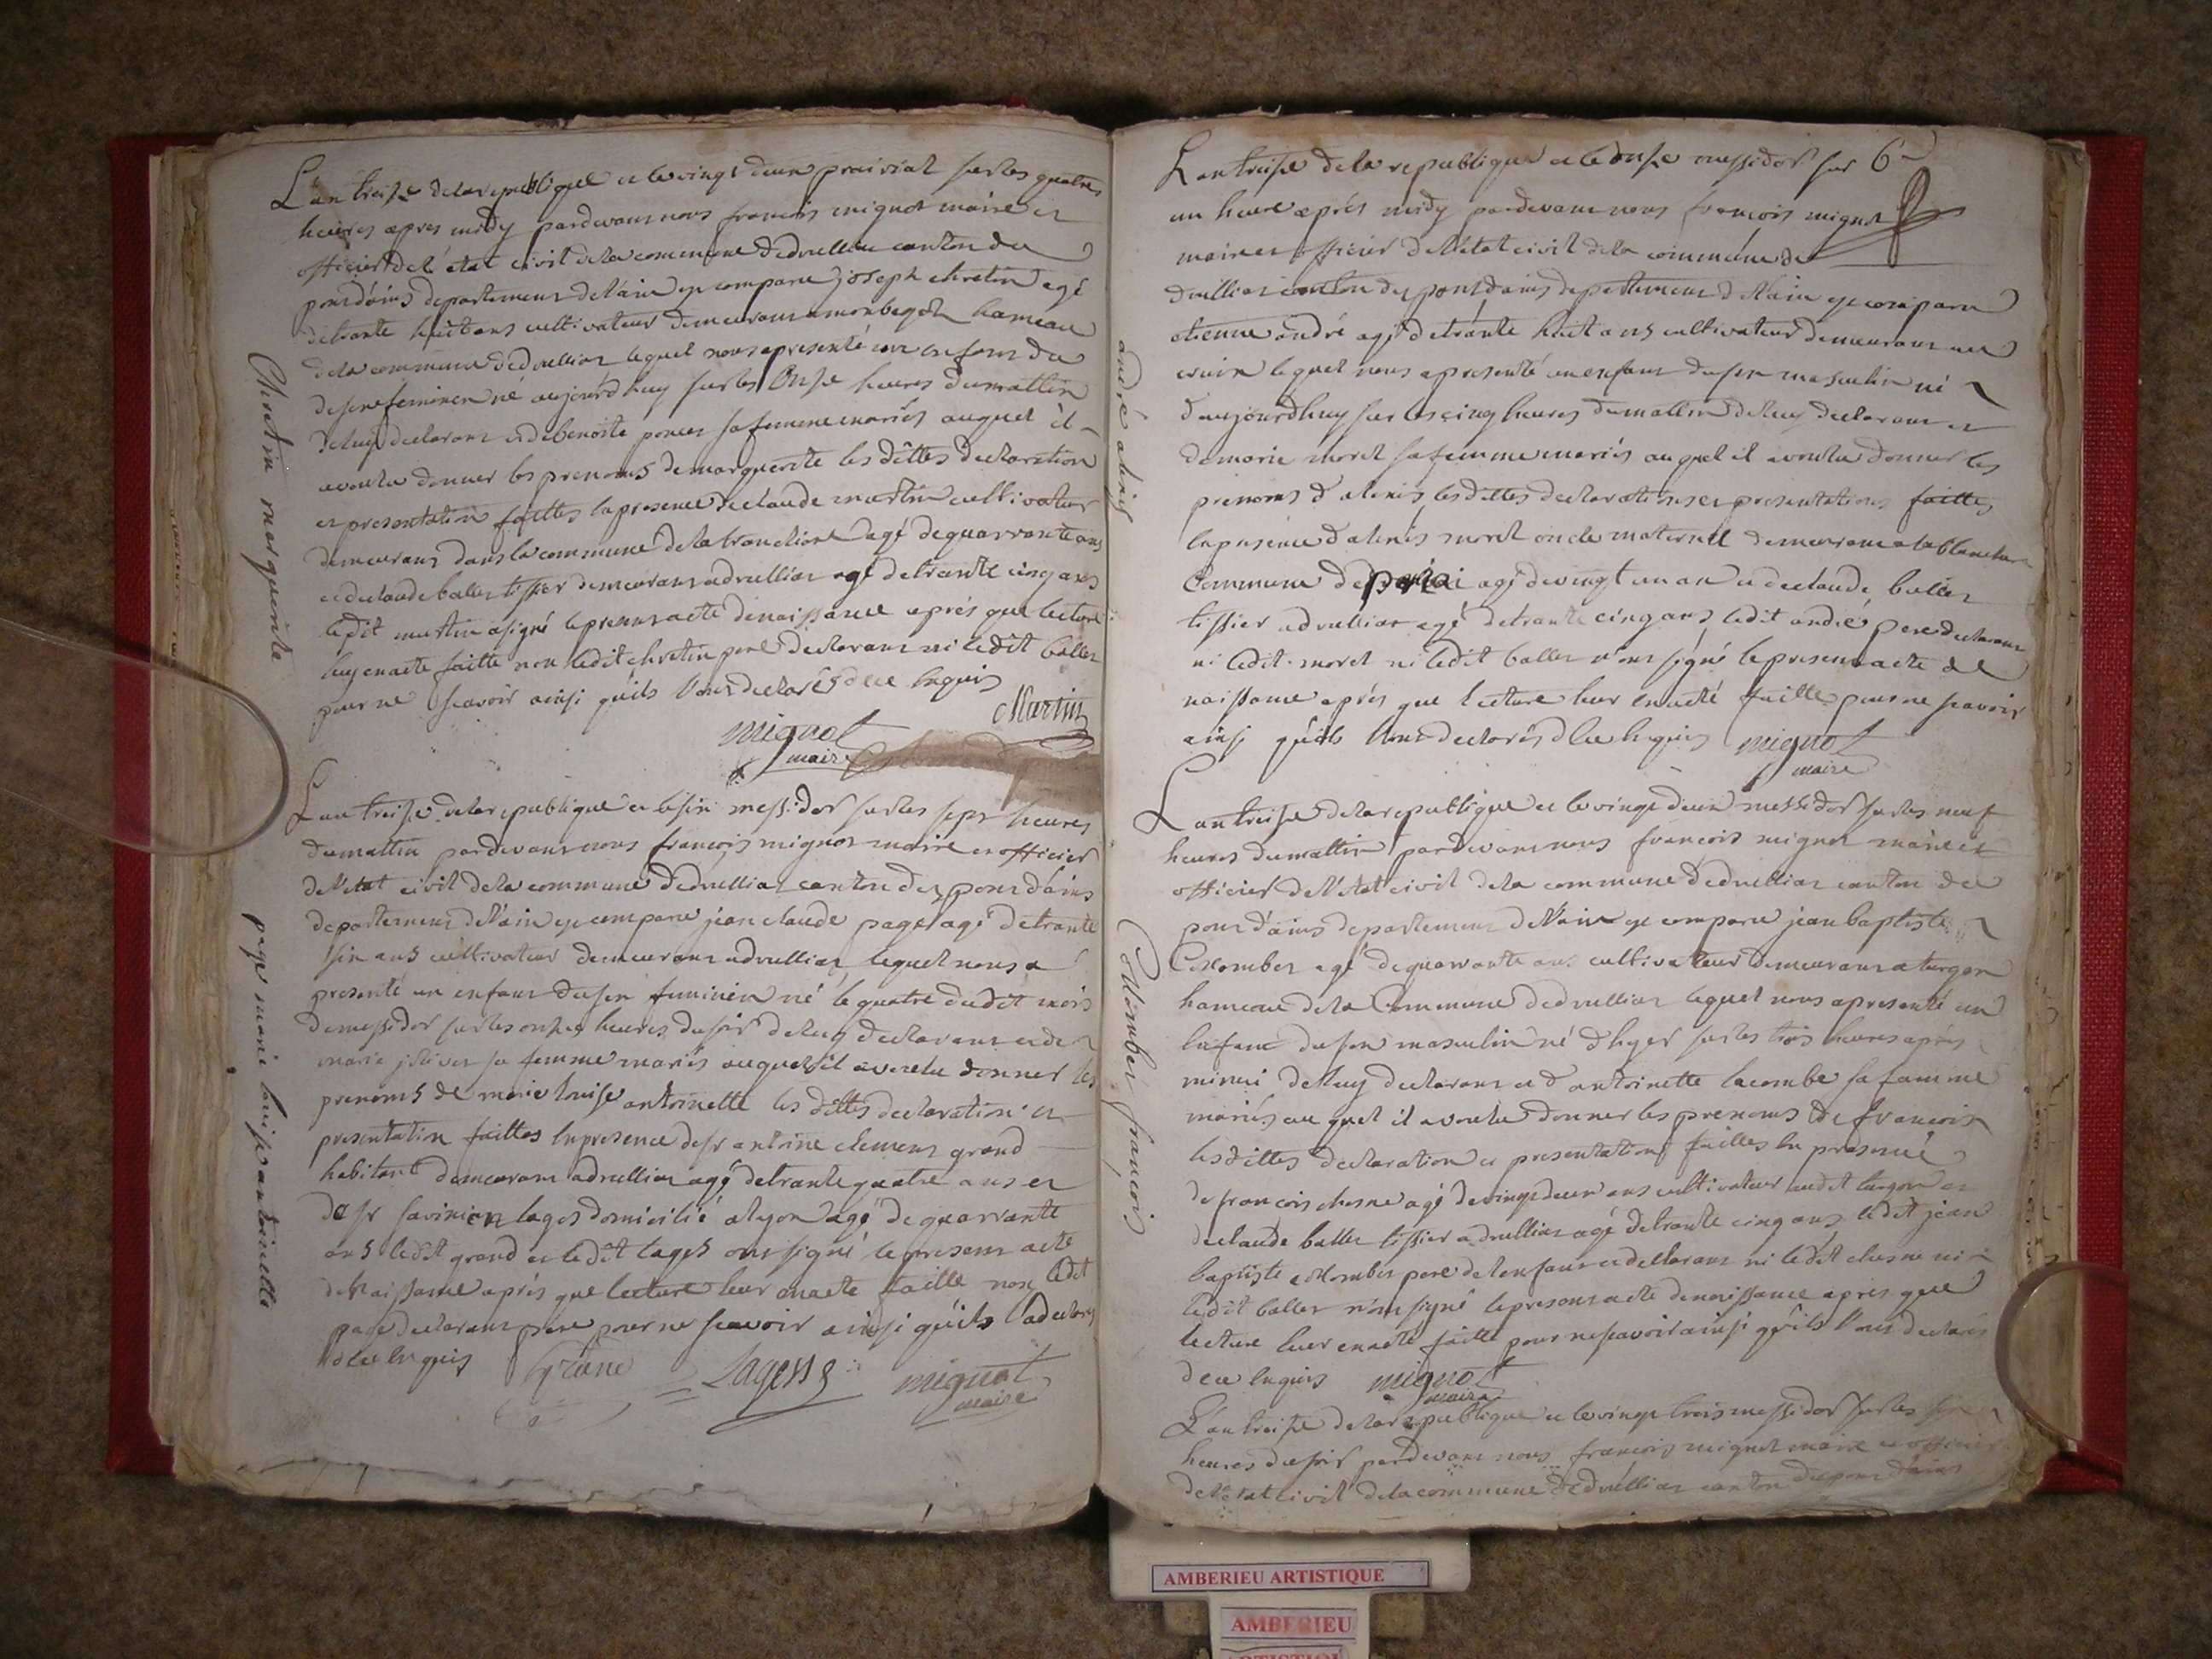 L'an treise de la republique et le vingt deux prairial sur les quatres
heures apres midy pardevant nous francois mignot maire et
officier de l'état civil de la commune de druillias canton du
pont dains departement de l'ain est comparu joseph chretin agé
de trante huit ans cultivateur demeurant a montbegoz hameau
de la commune de druillias lequel nous a presenté un enfans du
du sexe feminen né aujourd'huy sur les onse heures du mattin
de luy declarant et de benoite poncet sa femme mariés auquel il
a voulu donner les prenoms de marguerite les dittes declaration
et presentation faittes la presence de claude martin cultivateur
demeurant dans la commune de la tranchiere agé de quarrante ans
et de claude ballet tissier demeurant a druillias agé de trante cinq ans
ledit martin a signé le present acte de naissance aprés que lecture
luy en aeté faitte non ledit chretin pere declarant ni ledit ballet
pour ne scavoir ainsi qu'ils l'ont declarés de ce enquis
Martin
mignot
maire
Chretin marguerite
L'an treise de la republique et le six messidor sur les sept heures
du mattin pardevant nous francois mignot maire et officier
de l'etat civil de la commune de druillias canton du pont dains
departement de l'ain est comparu jean claude page agé de trante
six ans cultivateur demeurant a druillias lequel nous a
presenté un enfant du sex feminin né le quatre dudit mois
de messidor sur les onses heures du soir de luy declarant et de
marie jolivet sa femme mariés auquel il a voulu donner les
prenoms de marie louise antoinette les dittes declaration et
presentation faittes en presence de sr antoine clement grand
habitant demeurant a druillias agé de trante quatre ans et
de sr savinien lages domicilié a lyon agé de quarrante
ans ledit grand et ledit lages ont signé le present acte
de Naissance aprés que lecture leur en aeté faitte non ledit
page declarant pere pour ne scavoir ainsi qu'ils l'a declaré
de ce enquis Grand Lagess mignot
maire
page marie louise antoinette
L'an treise de la republique et le onse messidor sur 6
un heure aprés midy pardevant nous francois mignot
maire et officier de l'etat civil de la commune de
druillias canton du pont dains departement de l'ain est comparu
etienne andré agé de trante huit ans cultivateur demeurant au
lequel nous a presenté un enfant du sex masculin né
d'aujourdhuy sur les cinq heures du mattin de luy declarant et
de marie morel sa femme mariés auquel il a voulu donner les
prenoms d'alexis les dittes declarations et presentations faittes
en presence d'alexis morel oncle maternel demeurant a la blanche
Commune de agé de vingt un an et de claude ballet
tissier a druillias agé de trante cinq ans ledit andré pere declarant
ni ledit morel ni ledit ballet n'ont signé le present acte de
naissance aprés que lecture leur en aeté faitte pour ne scavoir
ainsi qu'ils l'ont declarés de ce enquis mignot
maire
andré alexis
L'an treise de la republique et le vingt deux messidor sur les neuf
heures du mattin pardevant nous francois mignot maire et
officier de l'etat civil de la commune de druillias canton de
pont d'ains departement de l'ain est comparu jean baptiste
Collombet agé de quarrante ans cultivateur demeurant a turgon
hameau de la Commune de druillias lequel nous a presenté un
enfant du sex masculin né d'hyer sur les trois heures aprés
minui de luy declarant et d'antoinette lacombe sa famme
mariés auquel il a voulu donner les prenoms de francois
les dittes declaration et presentation faittes en presence
de francois chesne agé de vingt deux ans cultivateur audit turgon et
de claude ballet tissier a druillias agé de trante cinq ans ledit jean
baptiste collombet pere de l'enfant et declarant ni ledit chesne ni
ledit ballet n'ont signé le present acte de naissance apres que
lecture leur en aeté faitte pour ne scavoir ainsi qu'ils l'ont declarés
de ce enquis mignot
maire
Collombet francois
L'an treise de la republique et le vingt trois messidor sur les
heures du soir pardevant nous francois mignot maire et officier
de l'etat civil de la commune de druillias canton du pont dains
AMBERIEU ARTISTIQUE
AMBERIEU
ARTISTIQUE